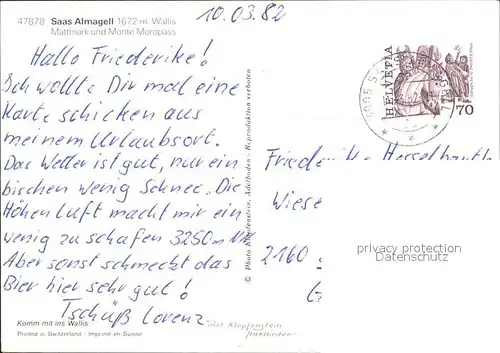 47878 Saas Almagell 1672 m. Wallis
Mattmark und Monte Moropass
10.03.82
Hallo Friederike!
Ich wollte Dir mal eine
Karte schicken aus
meinem Urlaubsort.
Das Wetter ist gut, nur ein
bischen wenig Schnee. Die
Höhenluft macht mir ein
wenig zu schafen 3250m
Aber sonst schmeckt das
Bier hier sehr gut!
Tschüß Lorenz
Komm mit ins Wallis
Printed in Switzerland - Imprimé en Suisse
© Photo Klopfenstein, Adelboden - Reproduktion verboten
Photo Klopfenstein
Adelboden
HELVETIA
70
Friederike
Wiese
2160
privacy protection
Datenschutz